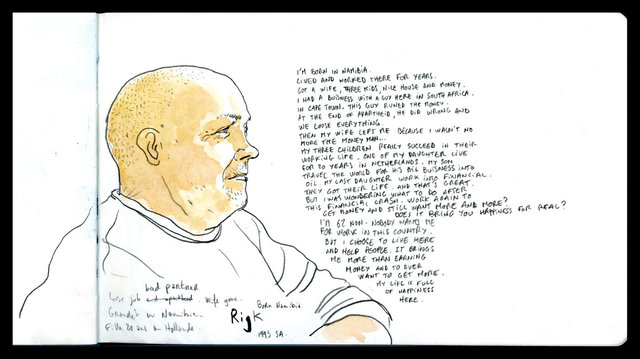 I'M BORN IN NAMIBIA.
LIVED AND WORKED THERE FOR YEARS.
GOT A WIFE, THREE KIDS, NICE HOUSE AND MONEY.
I HAD A BUSINESS WITH A GUY HERE IN SOUTH AFRICA.
IN CAPE TOWN. THIS GUY RUNED THE MONEY.
AT THE END OF APARTHEID, HE DID WRONG AND
WE LOOSE EVERYTHING.
THEN MY WIFE LEFT ME BECAUSE I WASN'T NO
MORE THE MONEY MAN...
MY THREE CHILDREN REALLY SUCCEED IN THEIR
WORKING LIFE. ONE OF MY DAUGHTER LIVE
FOR 20 YEARS IN NETHERLANDS. MY SON
TRAVEL THE WORLD FOR HIS BIG BUISNESS INTO
OIL. MY LAST DAUGHTER WORK INTO FINANCIAL.
THEY GOT THEIR LIFE. AND THAT'S GREAT.
BUT I WAS WONDERING WHAT TO DO AFTER
THIS FINANCIAL CRASH. WORK AGAIN TO
GET MONEY AND STILL WANT MORE AND MORE?
DOES IT BRING YOU HAPPINESS FOR REAL?
I'M 62 NOW. NOBODY WANTS ME
FOR WORK IN THIS COUNTRY.
BUT I CHOOSE TO LIVE HERE
AND HELP PEOPLE. IT BRINGS
ME MORE THAN EARNING
MONEY AND TO EVER
WANT TO GET MORE.
MY LIFE IS FULL
OF HAPPINESS
HERE.
bad partner
job end wife gone. Born Namibia
Namibie
Fille 20 ans Hollande
Rijk
1993 SA.